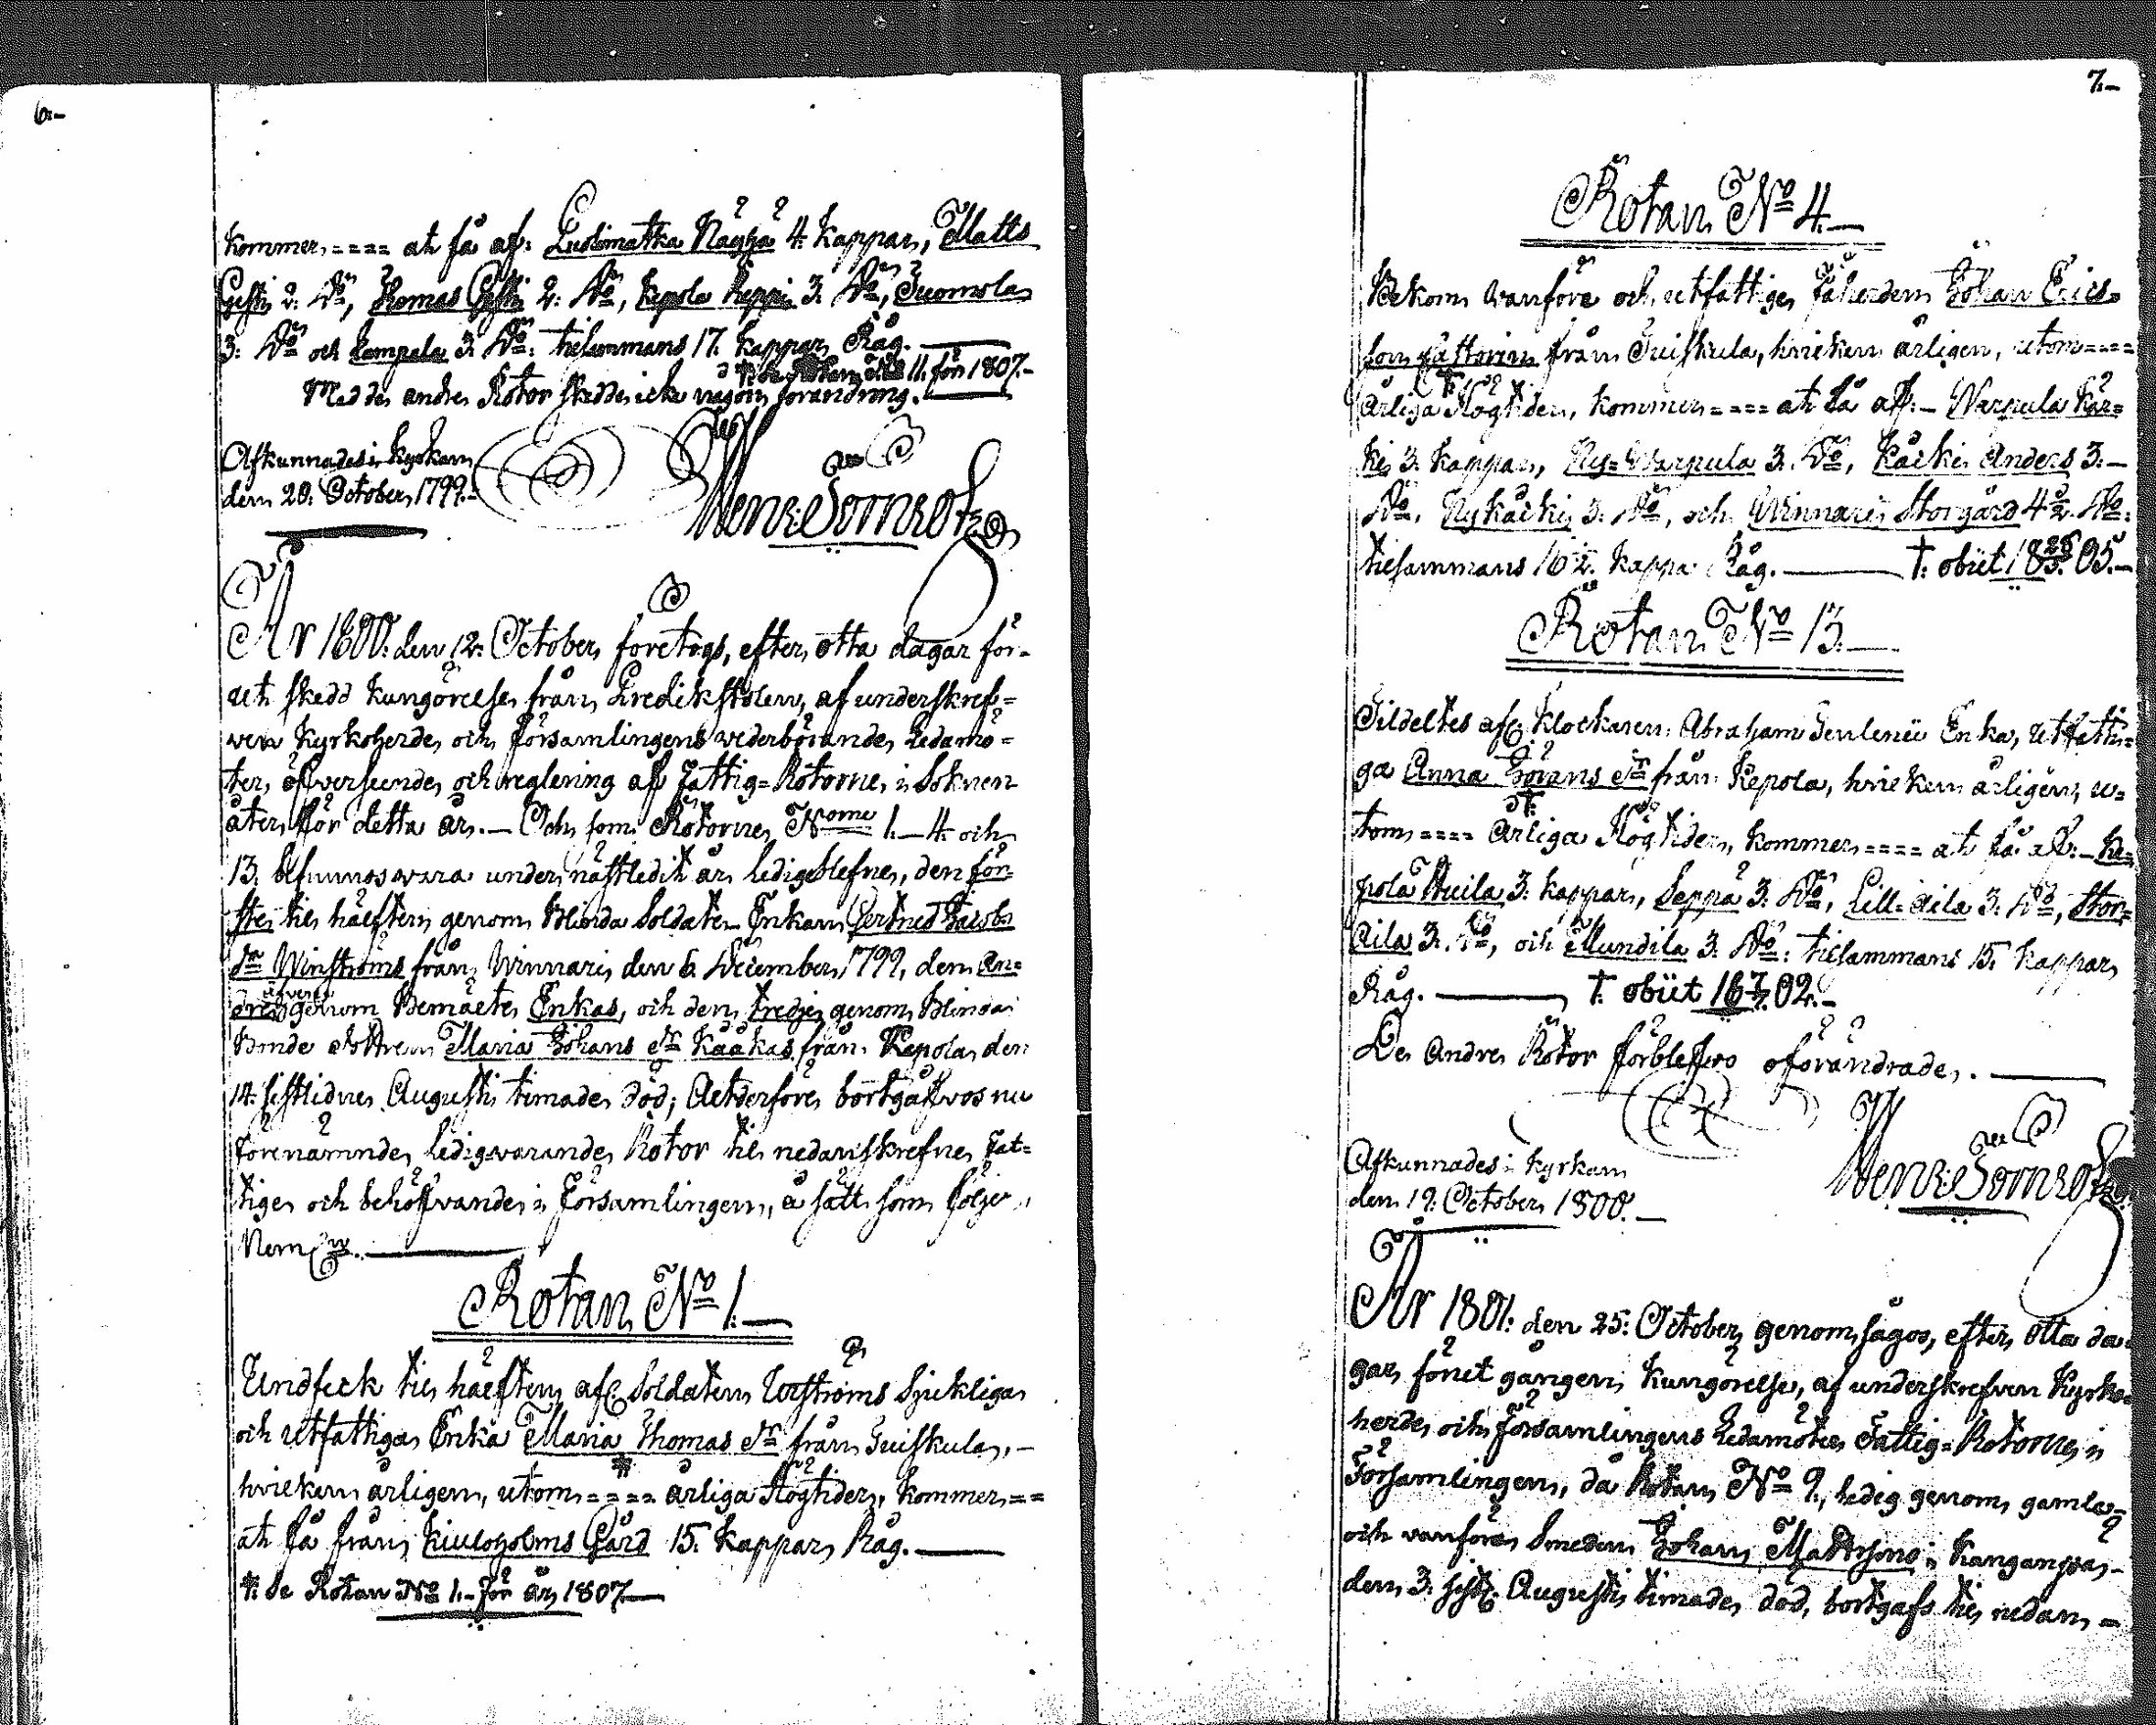 6.-
kommer ==== at få af: Ludimatka 4. kappar, Matts
2. D:o, Thomas 2. D:o, Kepola Seppä 3. D:o, Suomola
3. D:o och Lempola 3. D:o: tilsammans 17. kappar Råg. —
†. Se Rotan N:o 11. för 1807.-
Med de andre Rotor skedde icke någon förändring. —
Afkunnades i kyrkan
den 20. October 1799.-
År 1800. den 12. October, företogs, efter otta dagar för-
ut skedd kungörelse från Predikstolen, af underskref=
ven Kyrkoherde, och Församlingens vederbörande Ledamö=
ter, öfverseende och reglering af Fattig=Rotorne i Soknen
åter för detta år. — Och som Rotorne N:ome 1. — 4. och
13. befunnos vara under nästledit år ledigeblefne, den för-
ste til hälften genom blinda Soldate-Enkan Gertrud Jacobs
d:r Winströms från Winnari, den 6. December 1799, den an=
dre äfven genom Bemälte Enkas, och den tredje genom blinda
Bonde dottren Maria Johans d:r Kääkas från Kepola, den
14. sistlidne Augusti timade död; Altderföre bortgåfvos nu
förenämnde, ledigvarande Rotor til nedanskrefne Fat=
tige och behöfvande i Församlingen, å sätt som följer,
Neml.
Rotan N:o 1. —
Undfick til hälften afl. Soldaten Löfströms Sjukliga
och utfattiga Enka Maria Thomas d:r från Tuiskula, -
hvilken årligen, utom ==== årliga Högtider, kommer ==
at få från Kiuloholms Gård 15. kappar Råg. —
†. Se Rotan N:o 1.- för år 1807 —
7.-
Rotan N:o 4. —
Bekom vanföre och utfattige, Fäherden Johan Erics=
son från Tuiskula, hvilken årligen, utom ====
årliga Högtider, kommer ==== at få af: - Warpula Kär=
ki 3. kappar, Ny=Warpula 3. D:o, Kärki Anders 3. —
D:o, Nykärki 3. D:o, och Winnari Storgård 4½ D:o:
tilsammans 16½ kappa Råg. — †. obiit 18 05.-
Rotan N:o 13. —
Tildeltes afl. klockaren Abraham Enka, utfatti=
ga Anna Görans d:r från Kepola, hvilken årligen, u=
tom ==== årliga Högtider, kommer ==== at få af: - Ke=
pola Huila 3. kappar, Seppä 3. D:o, Lill=Aila 3. D:o, Stor=
Aila 3. D:o, och Mundila 3. D:o: tilsammans 15. kappar
Råg. — †. obiit 18 02.-
De Andre Rotor förblefvo oförändrade. —
Afkunnades i kyrkan
den 19. October 1800. —
År 1801. den 25. October, genomsågos, efter otta da=
gar förut gången kungörelse, af underskrefven Kyrko=
herde, och Församlingens Ledamöter Fattig=Rotorne i
Församlingen, då Rotan N:o 9., ledig genom gamla
och vanföra Smeden Johan Mattssons i Kanganpää
den 3. sistl. Augusti timade död, bortgafs til nedan=